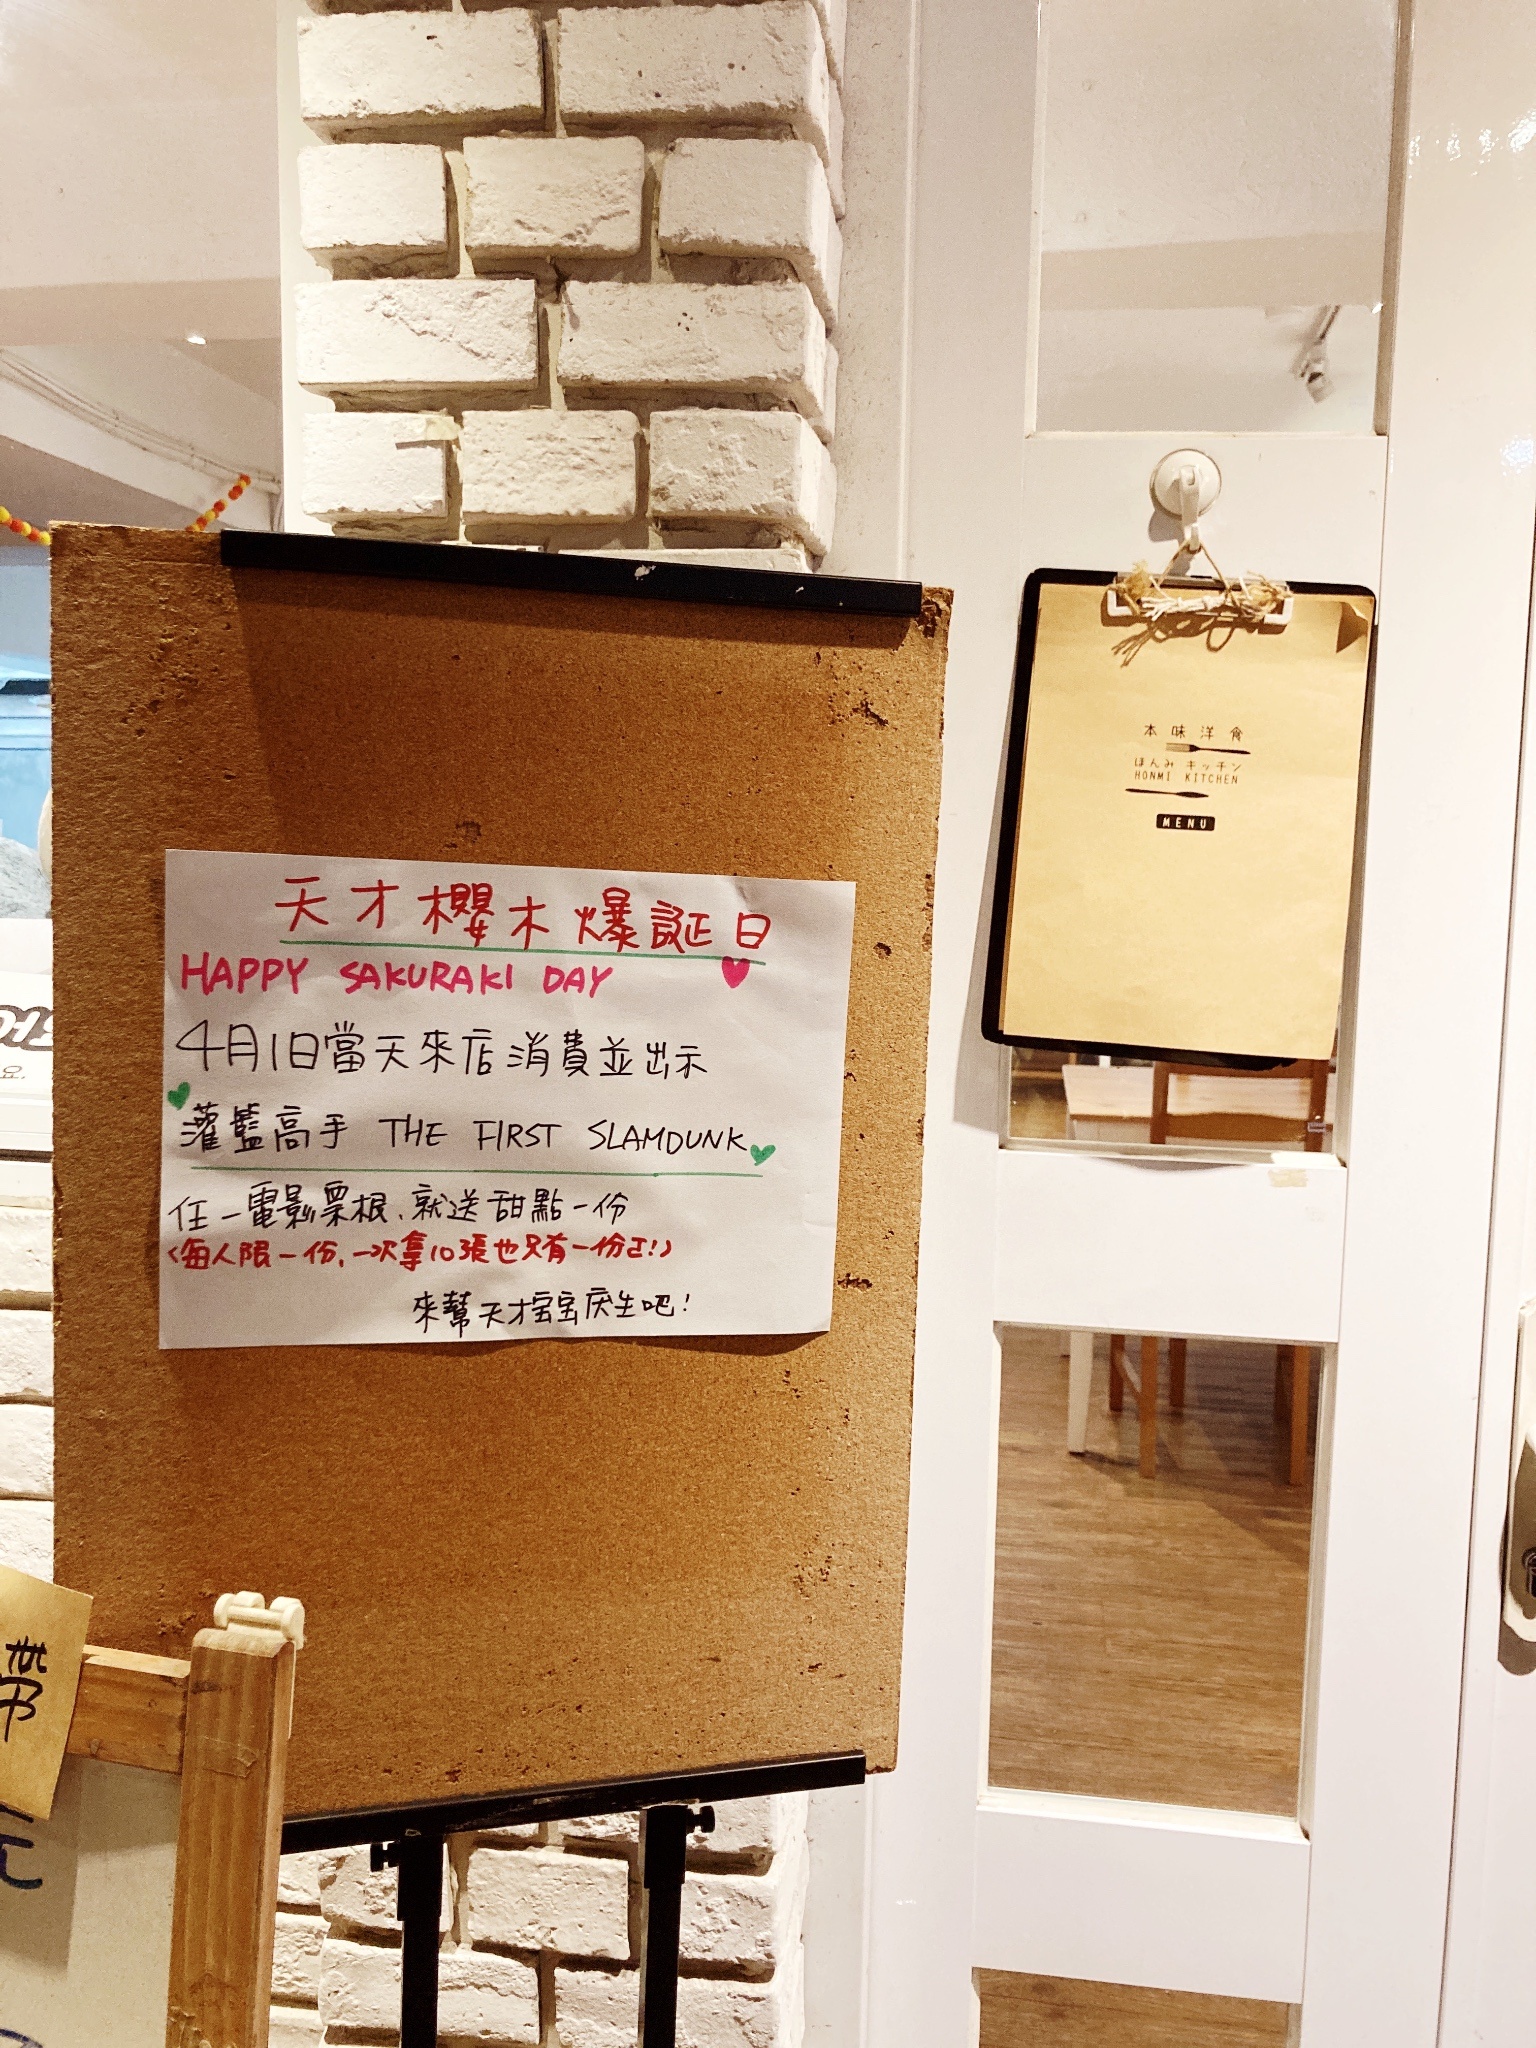 天才櫻木爆誕日
HAPPY SAKURAKI DAY
4月1日當天來店消費並出示
灌籃高手 THE FIRST SLAMDUNK
任一電影票根、就送甜點一份
(每人限一份,一次拿10張也只有一份ㄛ!)
來幫天才宝宝庆生吧!
本味洋食
ほんみ キッチン
HONMI KITCHEN
MENU
帶
요.